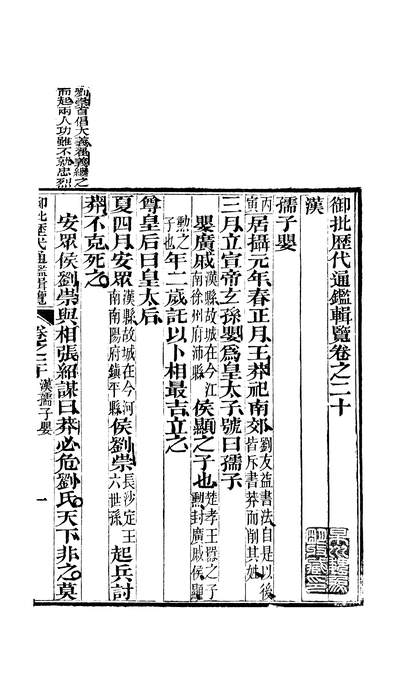 御批歷代通鑑輯覽卷之二十
漢
孺子嬰
丙寅居攝元年春正月王莽祀南郊劉友益書法自是以後皆斥書莽而削其姓
三月立宣帝玄孫嬰爲皇太子號曰孺子
嬰廣戚漢縣故城在今江南徐州府沛縣侯顯之子也楚孝王囂之子勳封廣戚侯顯
勳之子也年二歲託以卜相最吉立之
尊皇后曰皇太后
夏四月安眾漢縣故城在今河南南陽府鎮平縣侯劉崇長沙定王六世孫起兵討
莽不克死之
安眾侯劉崇與相張紹謀曰莽必危劉氏天下非之莫
劉崇首倡大義翟義繼之
而起兩人功雖不就忠烈
御批歷代通鑑輯覽
卷之二十
漢孺子嬰
一